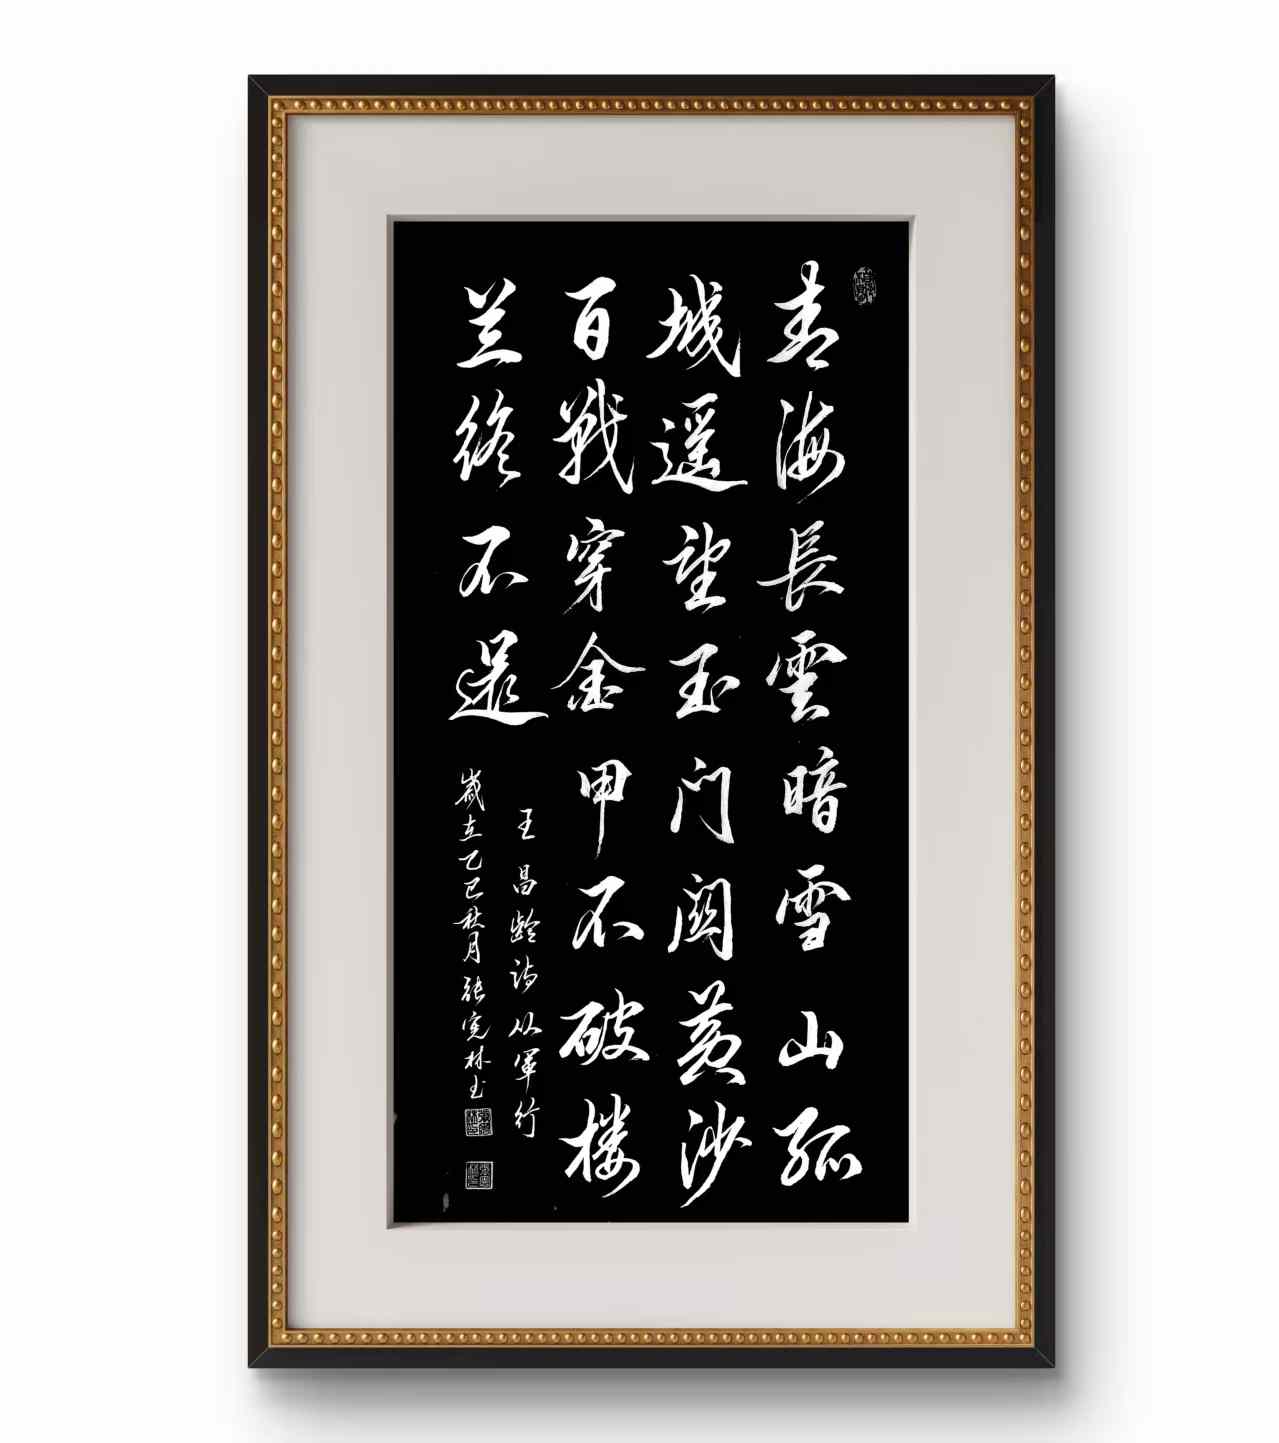 青海長雲暗雪山孤
城遥望玉门関黄沙
百戰穿金甲不破楼
兰终不還
王昌齡诗从軍行
歲在乙巳秋月張宽林书